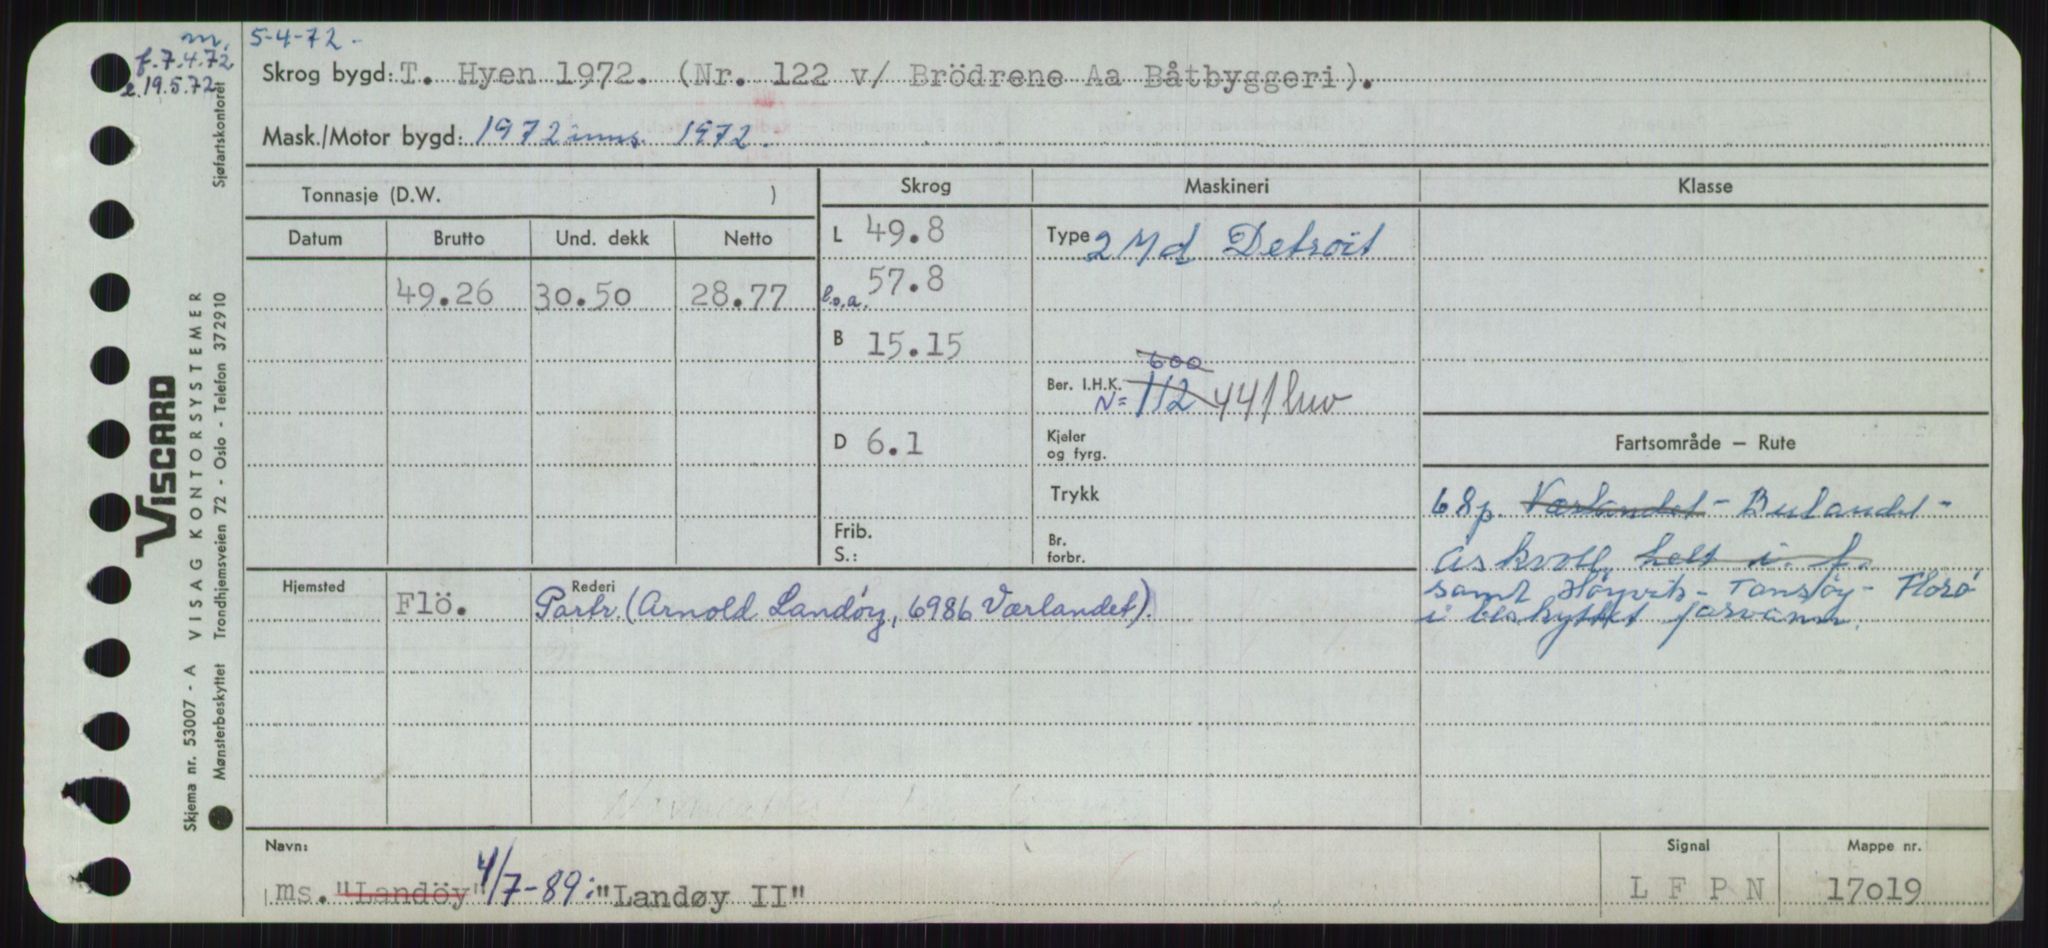 m. 5-4-72-
f. 7.4.72
e. 19.5.72
Skrog bygd: T. Hyen 1972. (Nr. 122 v/ Brödrene Aa Båtbyggeri).
Mask./Motor bygd: 1972 inns. 1972.
Tonnasje (D.W. )
Skrog Maskineri Klasse
Datum Brutto Und. dekk Netto
L 49.8
Type 2 Md Detroit
49.26 30.50 28.77
l.o.a. 57.8
B 15.15
600
Ber. I.H.K. N= 112 441 hw
D 6.1
Kjeler og fyrg.
Fartsområde – Rute
Trykk
68p. Værlandet - Bulandet -
Frib. S.:
Br. forbr.
Askvoll, helt i. f.
samt Höyvik - Tansöy - Florö
i beskyttet farvann.
Hjemsted Rederi
Flö. Partr. (Arnold Landöy, 6986 Værlandet).
Navn: Signal Mappe nr.
ms. "Landöy" 4/7-89: "Landøy II"
L F P N
17019
VISCARD
VISAG KONTORSYSTEMER
Skjema nr. 53007 - A
Mønsterbeskyttet Trondhjemsveien 72 - Oslo - Telefon 372910
Sjøfartskontoret